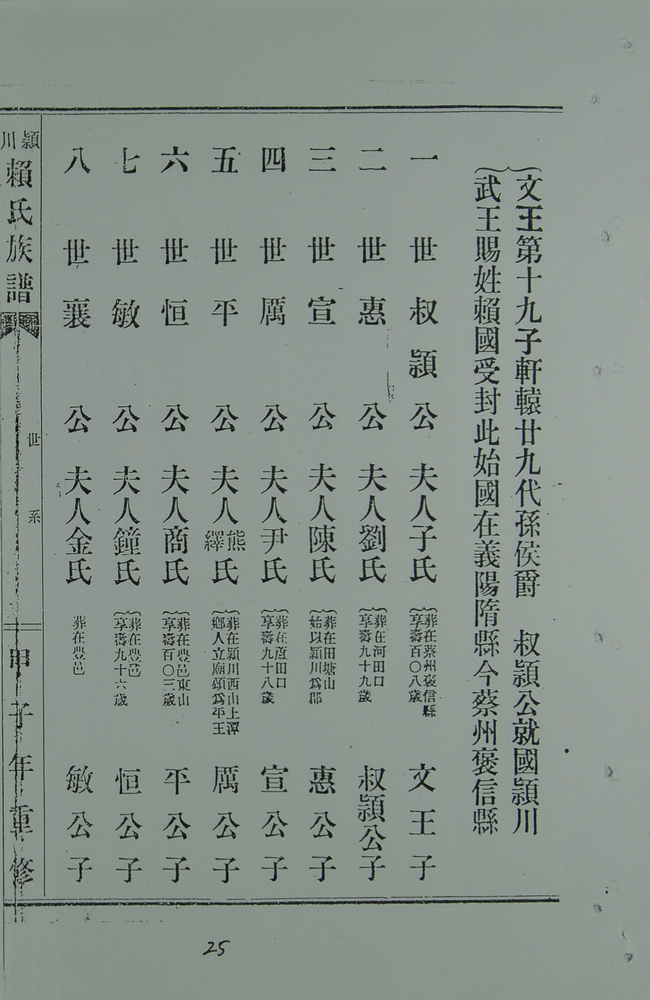 文王第十九子軒轅廿九代孫侯爵　叔潁公就國潁川
武王賜姓賴國受封此始國在義陽隋縣今蔡州褒信縣
一世叔潁公夫人子氏　葬在蔡州褒信縣　享壽百〇八歲　文王子
二世惠公夫人劉氏　葬在河田口　享壽九十九歲　叔潁公子
三世宣公夫人陳氏　葬在田塘山　始以潁川為郡　惠公子
四世厲公夫人尹氏　葬在蘆田口　享壽九十八歲　宣公子
五世平公夫人熊繹氏　葬在潁川西山上潭　鄉人立廟頌為平王　厲公子
六世恒公夫人商氏　葬在豊邑東山　享壽百〇三歲　平公子
七世敏公夫人鐘氏　葬在豊邑　享壽九十六歲　恒公子
八世襄公夫人金氏　葬在豊邑　敏公子
潁川賴氏族譜　世系　甲子年重修
25